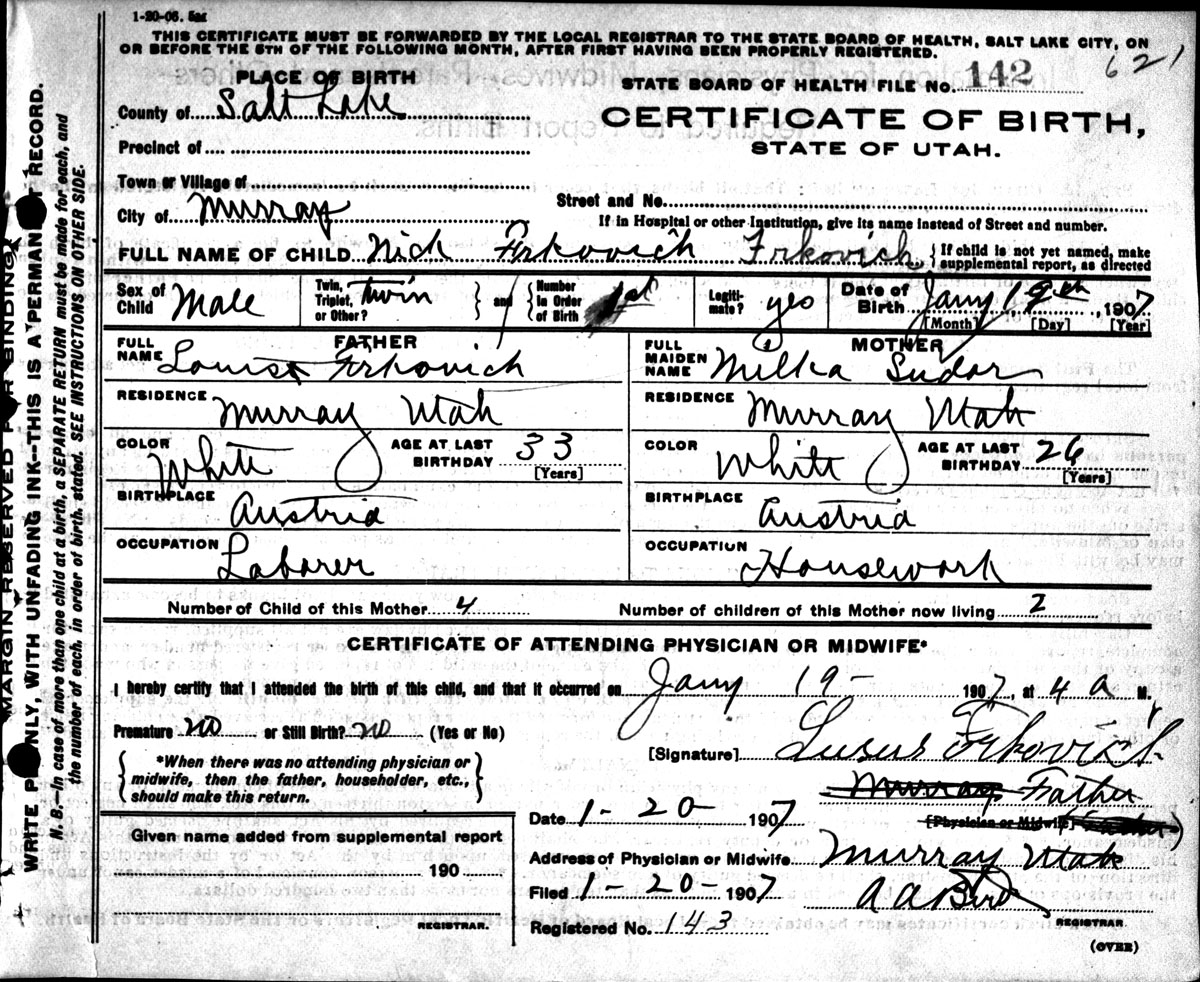 1-20-06. 5m
THIS CERTIFICATE MUST BE FORWARDED BY THE LOCAL REGISTRAR TO THE STATE BOARD OF HEALTH, SALT LAKE CITY, ON
OR BEFORE THE 5TH OF THE FOLLOWING MONTH, AFTER FIRST HAVING BEEN PROPERLY REGISTERED.
621
PLACE OF BIRTH
County of Salt Lake
Precinct of
Town or Village of
City of Murray
STATE BOARD OF HEALTH FILE NO. 142
CERTIFICATE OF BIRTH,
STATE OF UTAH.
Street and No.
If in Hospital or other Institution, give its name instead of Street and number.
FULL NAME OF CHILD Nick Frkovich Frkovich {If child is not yet named, make
supplemental report, as directed
Sex of Child Male
Twin, Triplet, or Other? twin } and { Number in Order of Birth 1st
Legitimate? yes
Date of Birth Jany 19th, 1907
[Month] [Day] [Year]
FATHER
FULL NAME Louis Frkovich
RESIDENCE Murray Utah
COLOR White AGE AT LAST BIRTHDAY 33
[Years]
BIRTHPLACE Austria
OCCUPATION Laborer
MOTHER
FULL MAIDEN NAME Milka Sudar
RESIDENCE Murray Utah
COLOR White AGE AT LAST BIRTHDAY 26
[Years]
BIRTHPLACE Austria
OCCUPATION Housework
Number of Child of this Mother 4 Number of children of this Mother now living 2
CERTIFICATE OF ATTENDING PHYSICIAN OR MIDWIFE*
I hereby certify that I attended the birth of this child, and that it occurred on Jany 19- 1907, at 4 a M.
Premature no or Still Birth? no (Yes or No)
{ *When there was no attending physician or
midwife, then the father, householder, etc.,
should make this return. }
[Signature] Frkovich
Murray Father
[Physician or Midwife] (Father)
Date 1-20- 1907
Address of Physician or Midwife Murray Utah
Filed 1-20-1907 A A Bird
REGISTRAR
Registered No. 143
(OVER)
Given name added from supplemental report
190
REGISTRAR.
MARGIN RESERVED FOR BINDING
WRITE PLAINLY, WITH UNFADING INK--THIS IS A PERMANENT RECORD.
N. B.--In case of more than one child at a birth, a SEPARATE RETURN must be made for each, and
the number of each, in order of birth, stated. SEE INSTRUCTIONS ON OTHER SIDE.